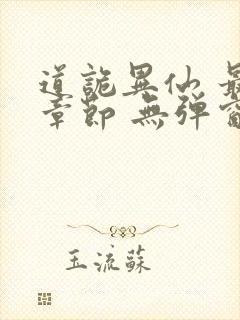 道詭異仙 最
章節 無彈窗
玉流蘇